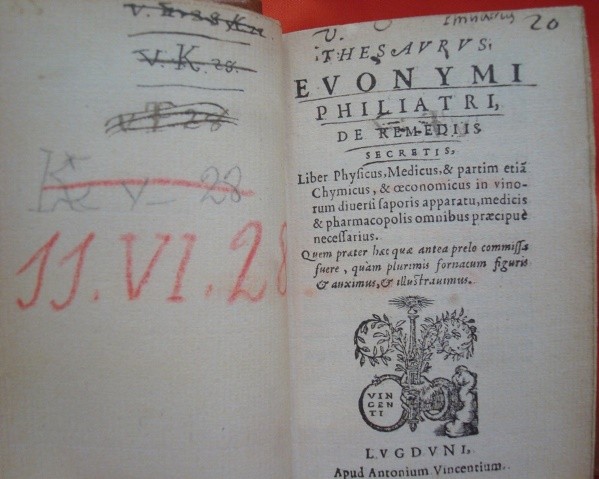 V. K. 28.
V T. 28
K V — 28
11.VI.28
V.
20
THESAVRVS,
EVONYMI
PHILIATRI,
DE REMEDIIS
SECRETIS,
Liber Phyſicus, Medicus, & partim etiã
Chymicus, & œconomicus in vino-
rum diuerſi ſaporis apparatu, medicis
& pharmacopolis omnibus præcipuè
neceſſarius.
Quem præter hæc quæ antea prelo commiſſa
fuere, quàm plurimis fornacum figuris
& auximus, & illuſtrauimus.
VIN
CEN
TI
LVGDVNI,
Apud Antonium Vincentium.